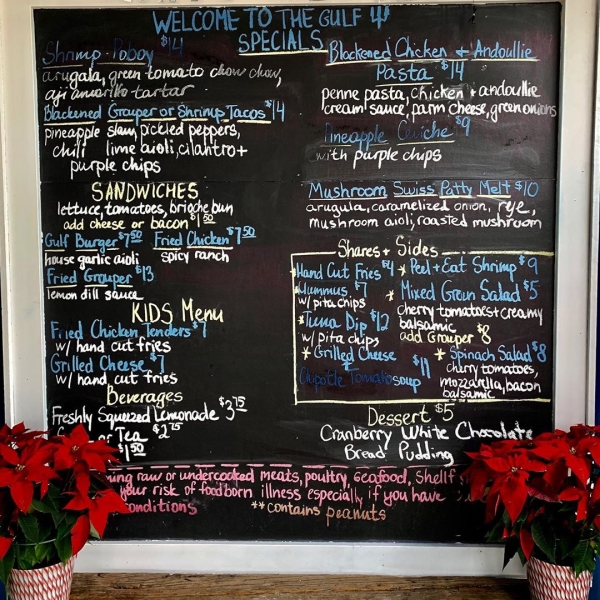 WELCOME TO THE GULF
SPECIALS
Shrimp Poboy $14
arugala, green tomato chow chow,
aji amarillo tartar
Blackened Grouper or Shrimp Tacos $14
pineapple slaw, pickled peppers,
chili lime aioli, cilantro +
purple chips
SANDWICHES
lettuce, tomatoes, brioche bun
add cheese or bacon $1.50
Gulf Burger $7.50 Fried Chicken $7.50
house garlic aioli spicy ranch
Fried Grouper $13
lemon dill sauce
KIDS Menu
Fried Chicken Tenders $7
w/ hand cut fries
Grilled Cheese $7
w/ hand cut fries
Beverages
Freshly Squeezed Lemonade $3.75
or Tea $2.75
$1.50
Blackened Chicken + Andoullie
Pasta $14
penne pasta, chicken + andoullie
cream sauce, parm cheese, green onions
Pineapple Ceviche $9
with purple chips
Mushroom Swiss Patty Melt $10
arugula, caramelized onion, rye,
mushroom aioli, roasted mushroom
Shares + Sides
*Hand Cut Fries $4
*Hummus $7
w/ pita chips
*Tuna Dip $12
w/ pita chips
*Grilled Cheese
+
Chipotle Tomato soup $11
*Peel + Eat Shrimp $9
*Mixed Green Salad $5
cherry tomatoes + creamy
balsamic
add Grouper $8
*Spinach Salad $8
cherry tomatoes,
mozzarella, bacon
balsamic
Dessert $5
Cranberry White Chocolate
Bread Pudding
raw or undercooked meats, poultry, seafood,
your risk of foodborn illness especially if you have
conditions **contains peanuts